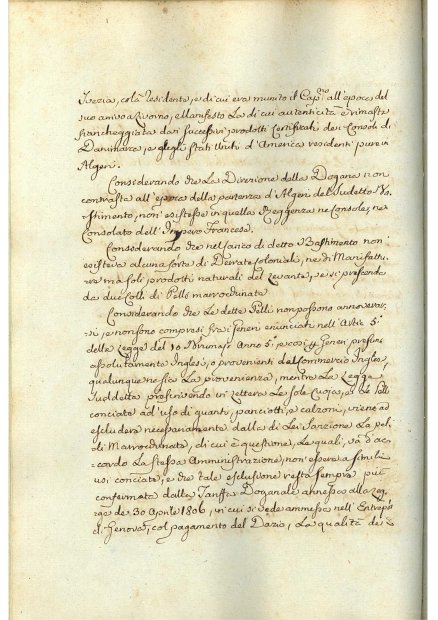 Svezia, colà residente, e di cui era munito il Cap.no all'epoca del
suo arrivo a Livorno, e Manifesto la di cui autenticità è rimasta
fiancheggiata dai successivi prodotti Certificati dei Consoli di
Danimarca, e degli Stati Uniti d'America residenti pure in
Algeri.
Considerando che la Direzione della Dogana non
contrasta all'epoca della partenza d'Algeri del sudetto Ba-
stimento, non esistesse in quella Reggenza nè Console, nè
Consolato dell'Impero Francese.
Considerando che nel carico di detto Bastimento non
esisteva alcuna sorta di Derrate coloniali, nè di Manifattu-
ma soli prodotti naturali del Levante, e si prescinda
da due Colli di Pelli marrocchinate
Considerando che le dette Pelli non possono annoverar-
si, e non sono compresi fra i Generi enunciati nell'Art.o 5.o
della Legge del 10 Brumajo Anno 5.o Generi presunti
assolutamente Inglesi, o provenienti dal Commercio Inglese,
qualunque ne sia la provenienza, mentre la Legge
suddetta proscrivendo in Lettera le sole Cuoja, e le Pelli
conciate ad uso di guanti, panciotti e calzoni, viene ad
escludere necessariamente dalla di Lei Sanzione la pelli
di Marrocchinate, di cui è questione, le quali, và d'ac-
cordo la stessa Amministrazione, non essere a simili
usi conciate, e che tale esclusione resta sempre più
confermata dalla Tariffa Doganale annessa alla Leg-
ge de 30 Aprile 1806, in cui si vede ammessa nell'Entrepo
di Genova, col pagamento del Dazio, la qualità de